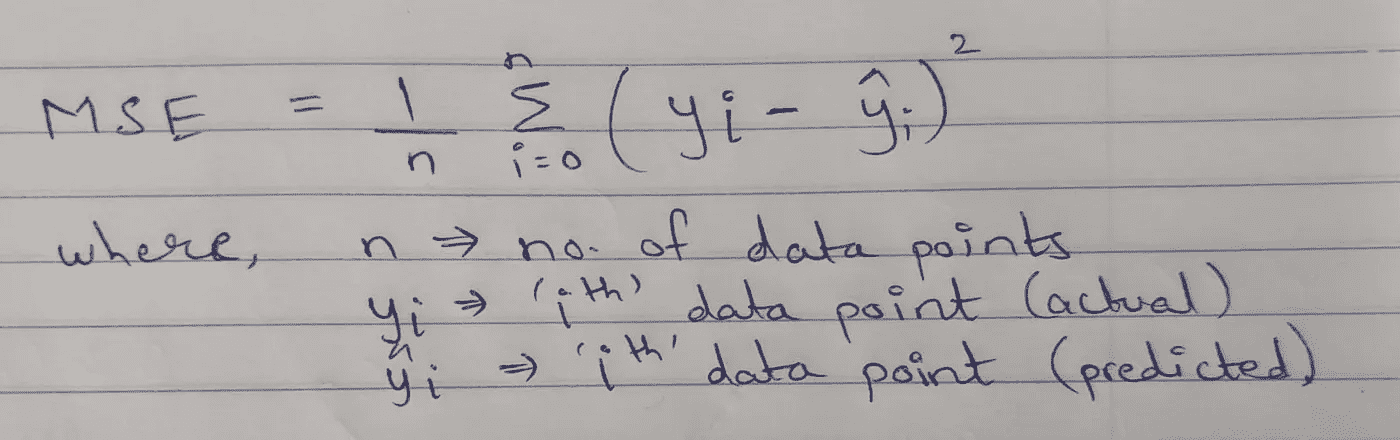 MSE = 1/n n Σ i=0 (yi - ŷi)²
where, n ⇒ no. of data points
yi ⇒ 'ith' data point (actual)
ŷi ⇒ 'ith' data point (predicted)